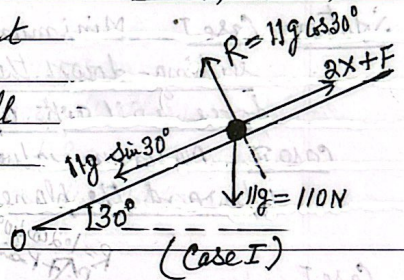 R = 11g cos30°
2X+F
11g sin30°
11g = 110N
30°
O
(Case I)